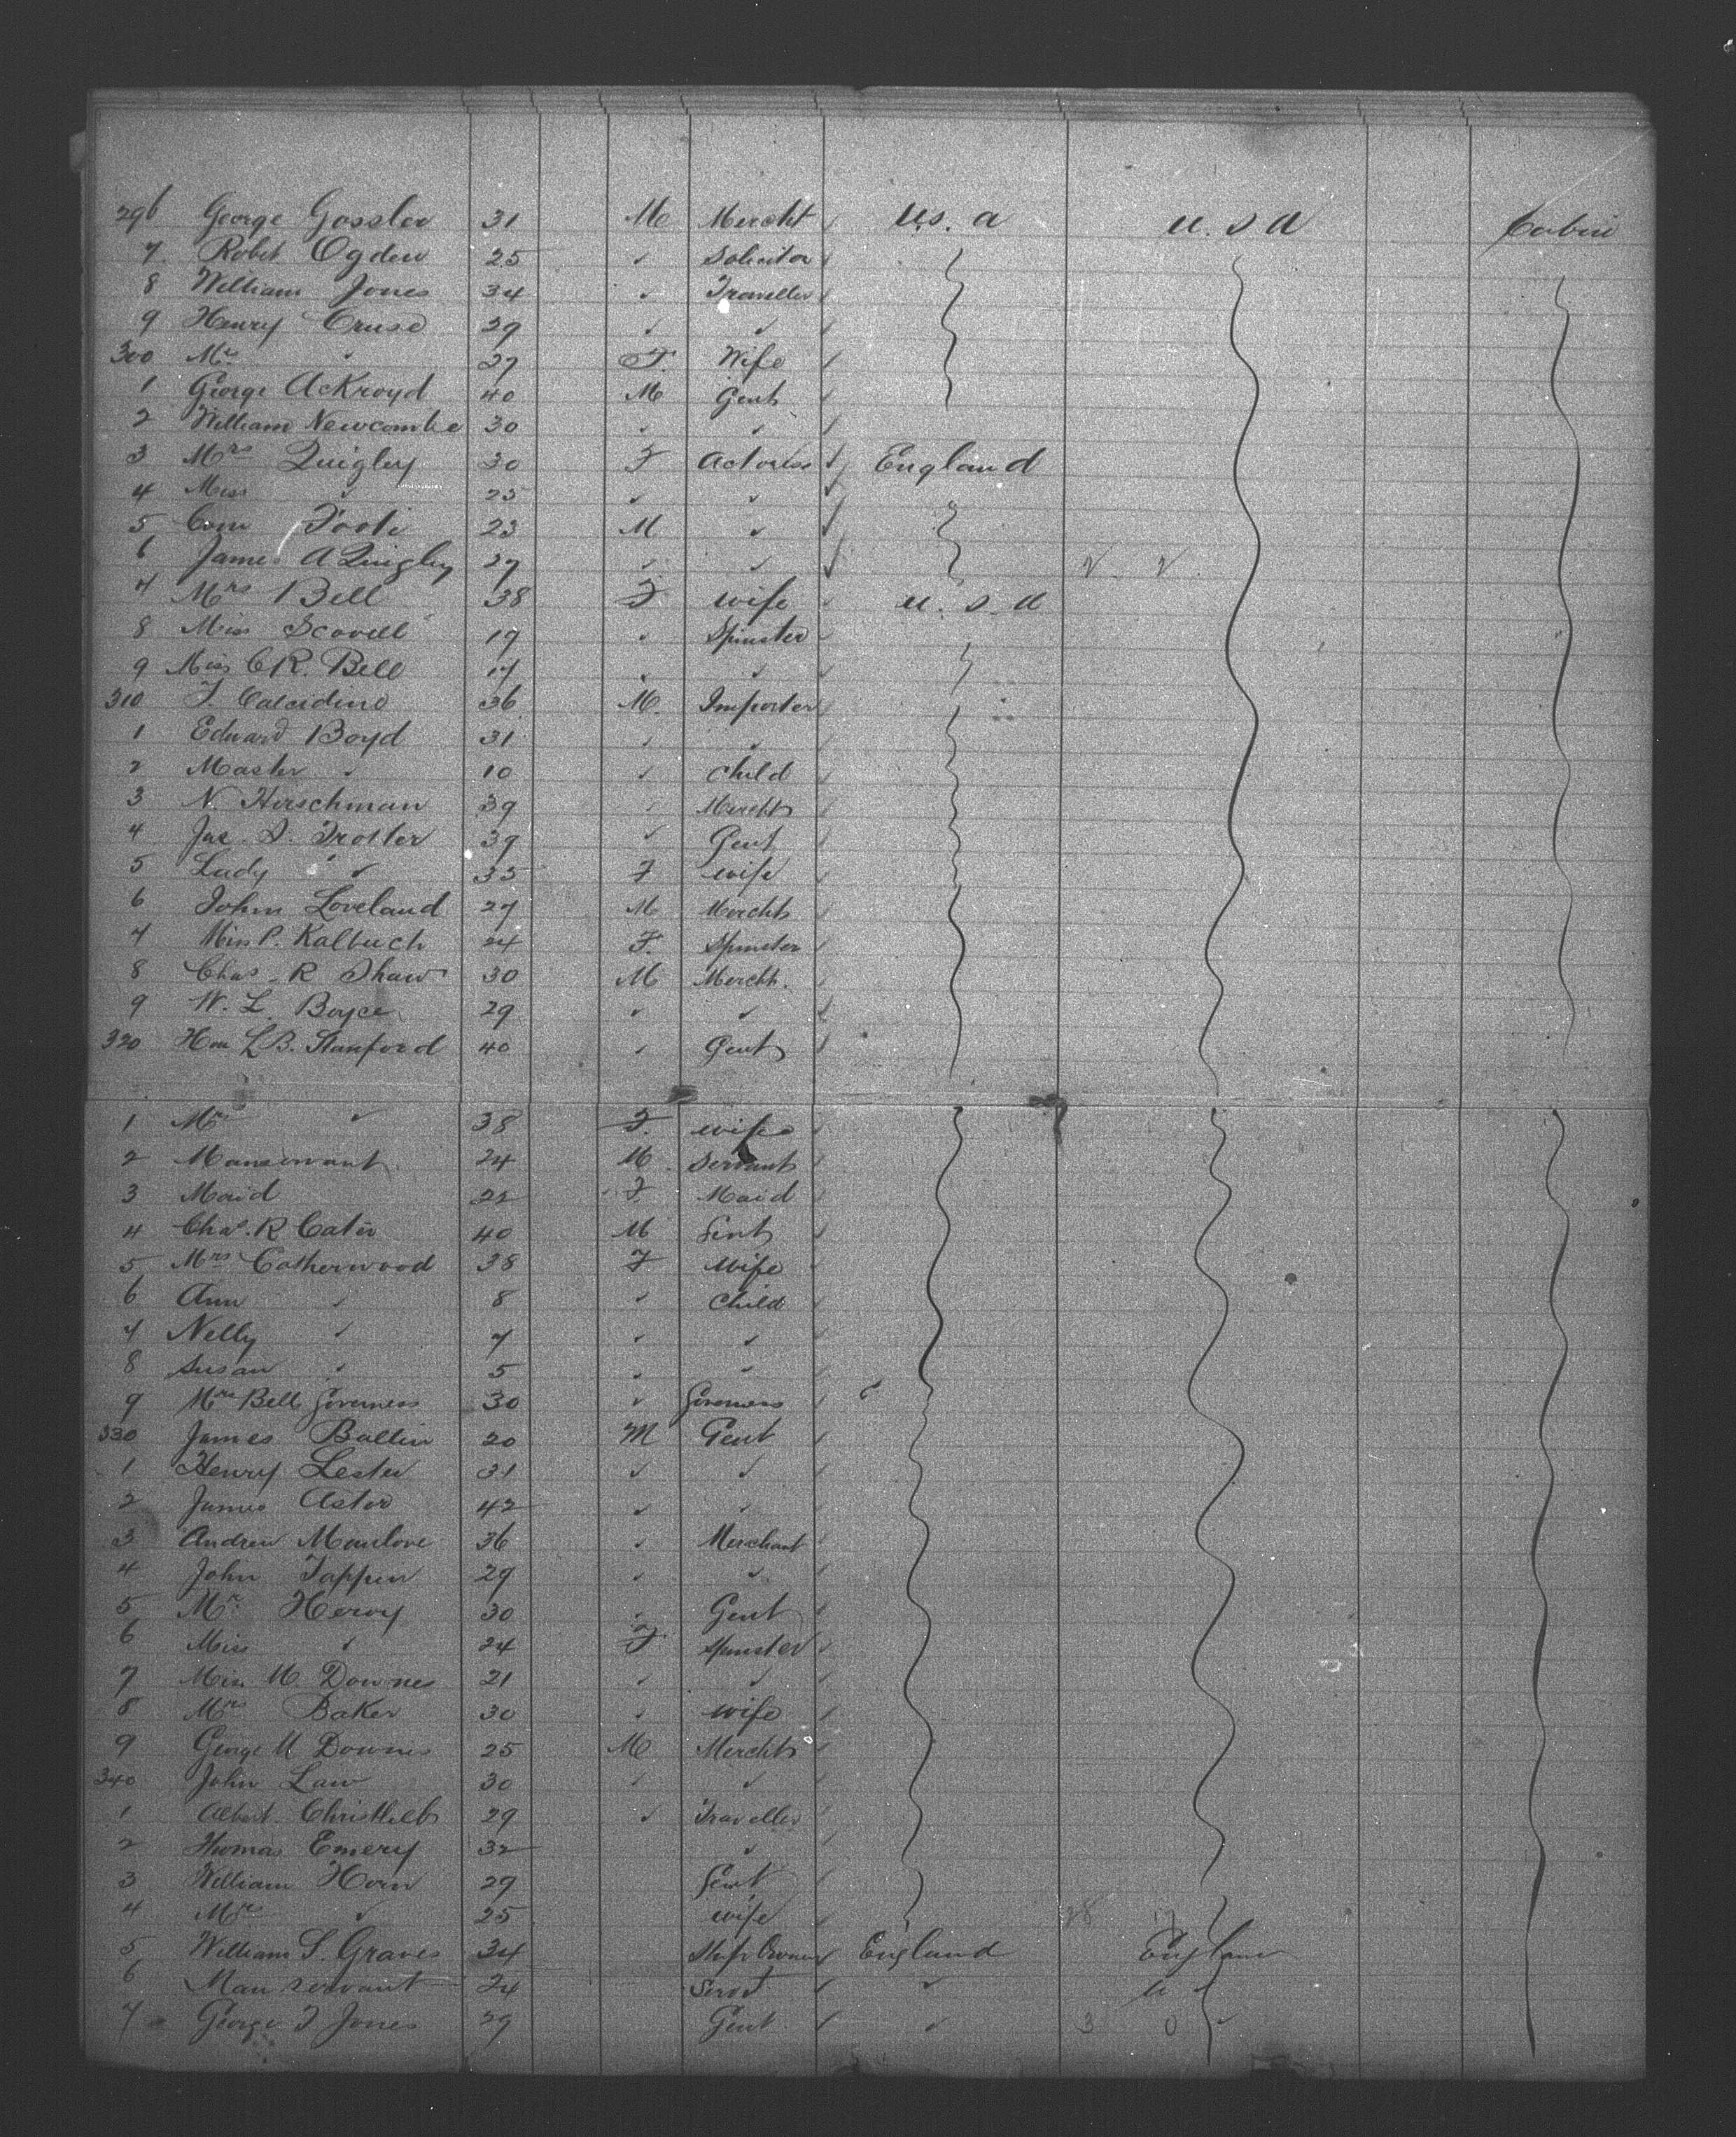 296 George Gossler 31 M Mercht U.S.A U.S.A Cabin
7 Robt Ogden 25 ✓ Solicitor
8 William Jones 34 ✓ Traveller
9 Henry Cruse 39 ✓ ✓
300 Mrs ✓ 27 F. Wife
1 George Ackroyd 40 M Gent
2 William Newcombe 30 ✓ ✓
3 Mrs Quigley 30 F Actress England
4 Miss ✓ 25 ✓ ✓
5 Com 23 M ✓
6 James A Quigley 27 ✓ ✓
7 Mrs Bell 38 F wife U.S.A
8 Miss Scovell 19 ✓ Spinster
9 Miss C R. Bell 17 ✓ ✓
310 F. 36 M. Importer
1 Edward Boyd 31 ✓ ✓
2 Master ✓ 10 ✓ Child
3 N. Hirschman 39 ✓ Mercht
4 Jas. Trotter 39 ✓ Gent
5 Lady ✓ 35 F wife
6 John Loveland 27 M Mercht
7 Miss P. Kalbuch 24 F. Spinster
8 Chas. R Shaw 30 M Mercht.
9 W. L. Boyce 29 ✓ ✓
320 Hon L B. Stanford 40 ✓ Gent
1 Mrs ✓ 38 F. wife
2 Manservant 24 M. Servant
3 Maid 22 F. Maid
4 Chas. R Cater 40 M Gent
5 Mrs Catherwood 38 F Wife
6 Ann ✓ 8 ✓ Child
7 Nelly ✓ 7 ✓ ✓
8 Susan ✓ 5 ✓ ✓
9 Mrs Bell Governess 30 ✓ Governess
330 James Ballin 20 M Gent
1 Henry Lester 31 ✓ ✓
2 James Astor 42 ✓ ✓
3 Andrew Manlove 36 ✓ Merchant
4 John Tappen 29 ✓ ✓
5 Mr Hervy 30 ✓ Gent
6 Miss ✓ 24 F Spinster
7 Miss M. Downes 21 ✓ ✓
8 Mrs Baker 30 ✓ wife
9 George M Downes 25 M Mercht
340 John Law 30 ✓ ✓
1 Albert Christlieb 29 ✓ Traveller
2 Thomas Emery 32 ✓
3 William Horn 29 Gent
4 Mrs ✓ 25 wife
5 William S. Graves 34 Ship Owner England England
6 Man servant 24 Servt ✓
7 George T Jones 29 Gent ✓ 3 0 ✓